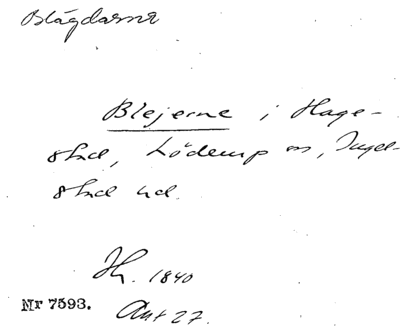 Blågdarna
Blejerne i Hage-
stad, Löderup sn, Ingel-
stad hd.
Jh. 1840
Nr 7593. Ant 27.